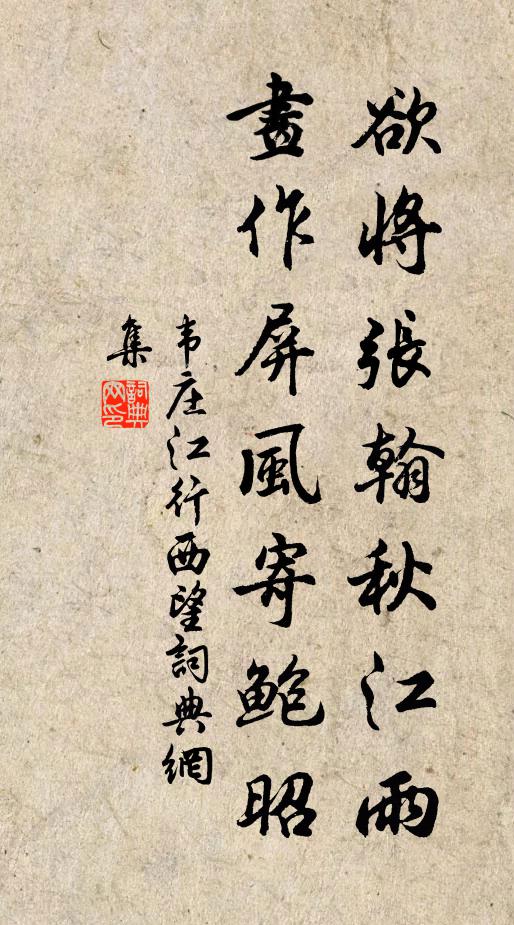 欲將張翰秋江雨
畫作屏風寄鮑昭
韦庄江行西望詞典網
集
詞典
网印